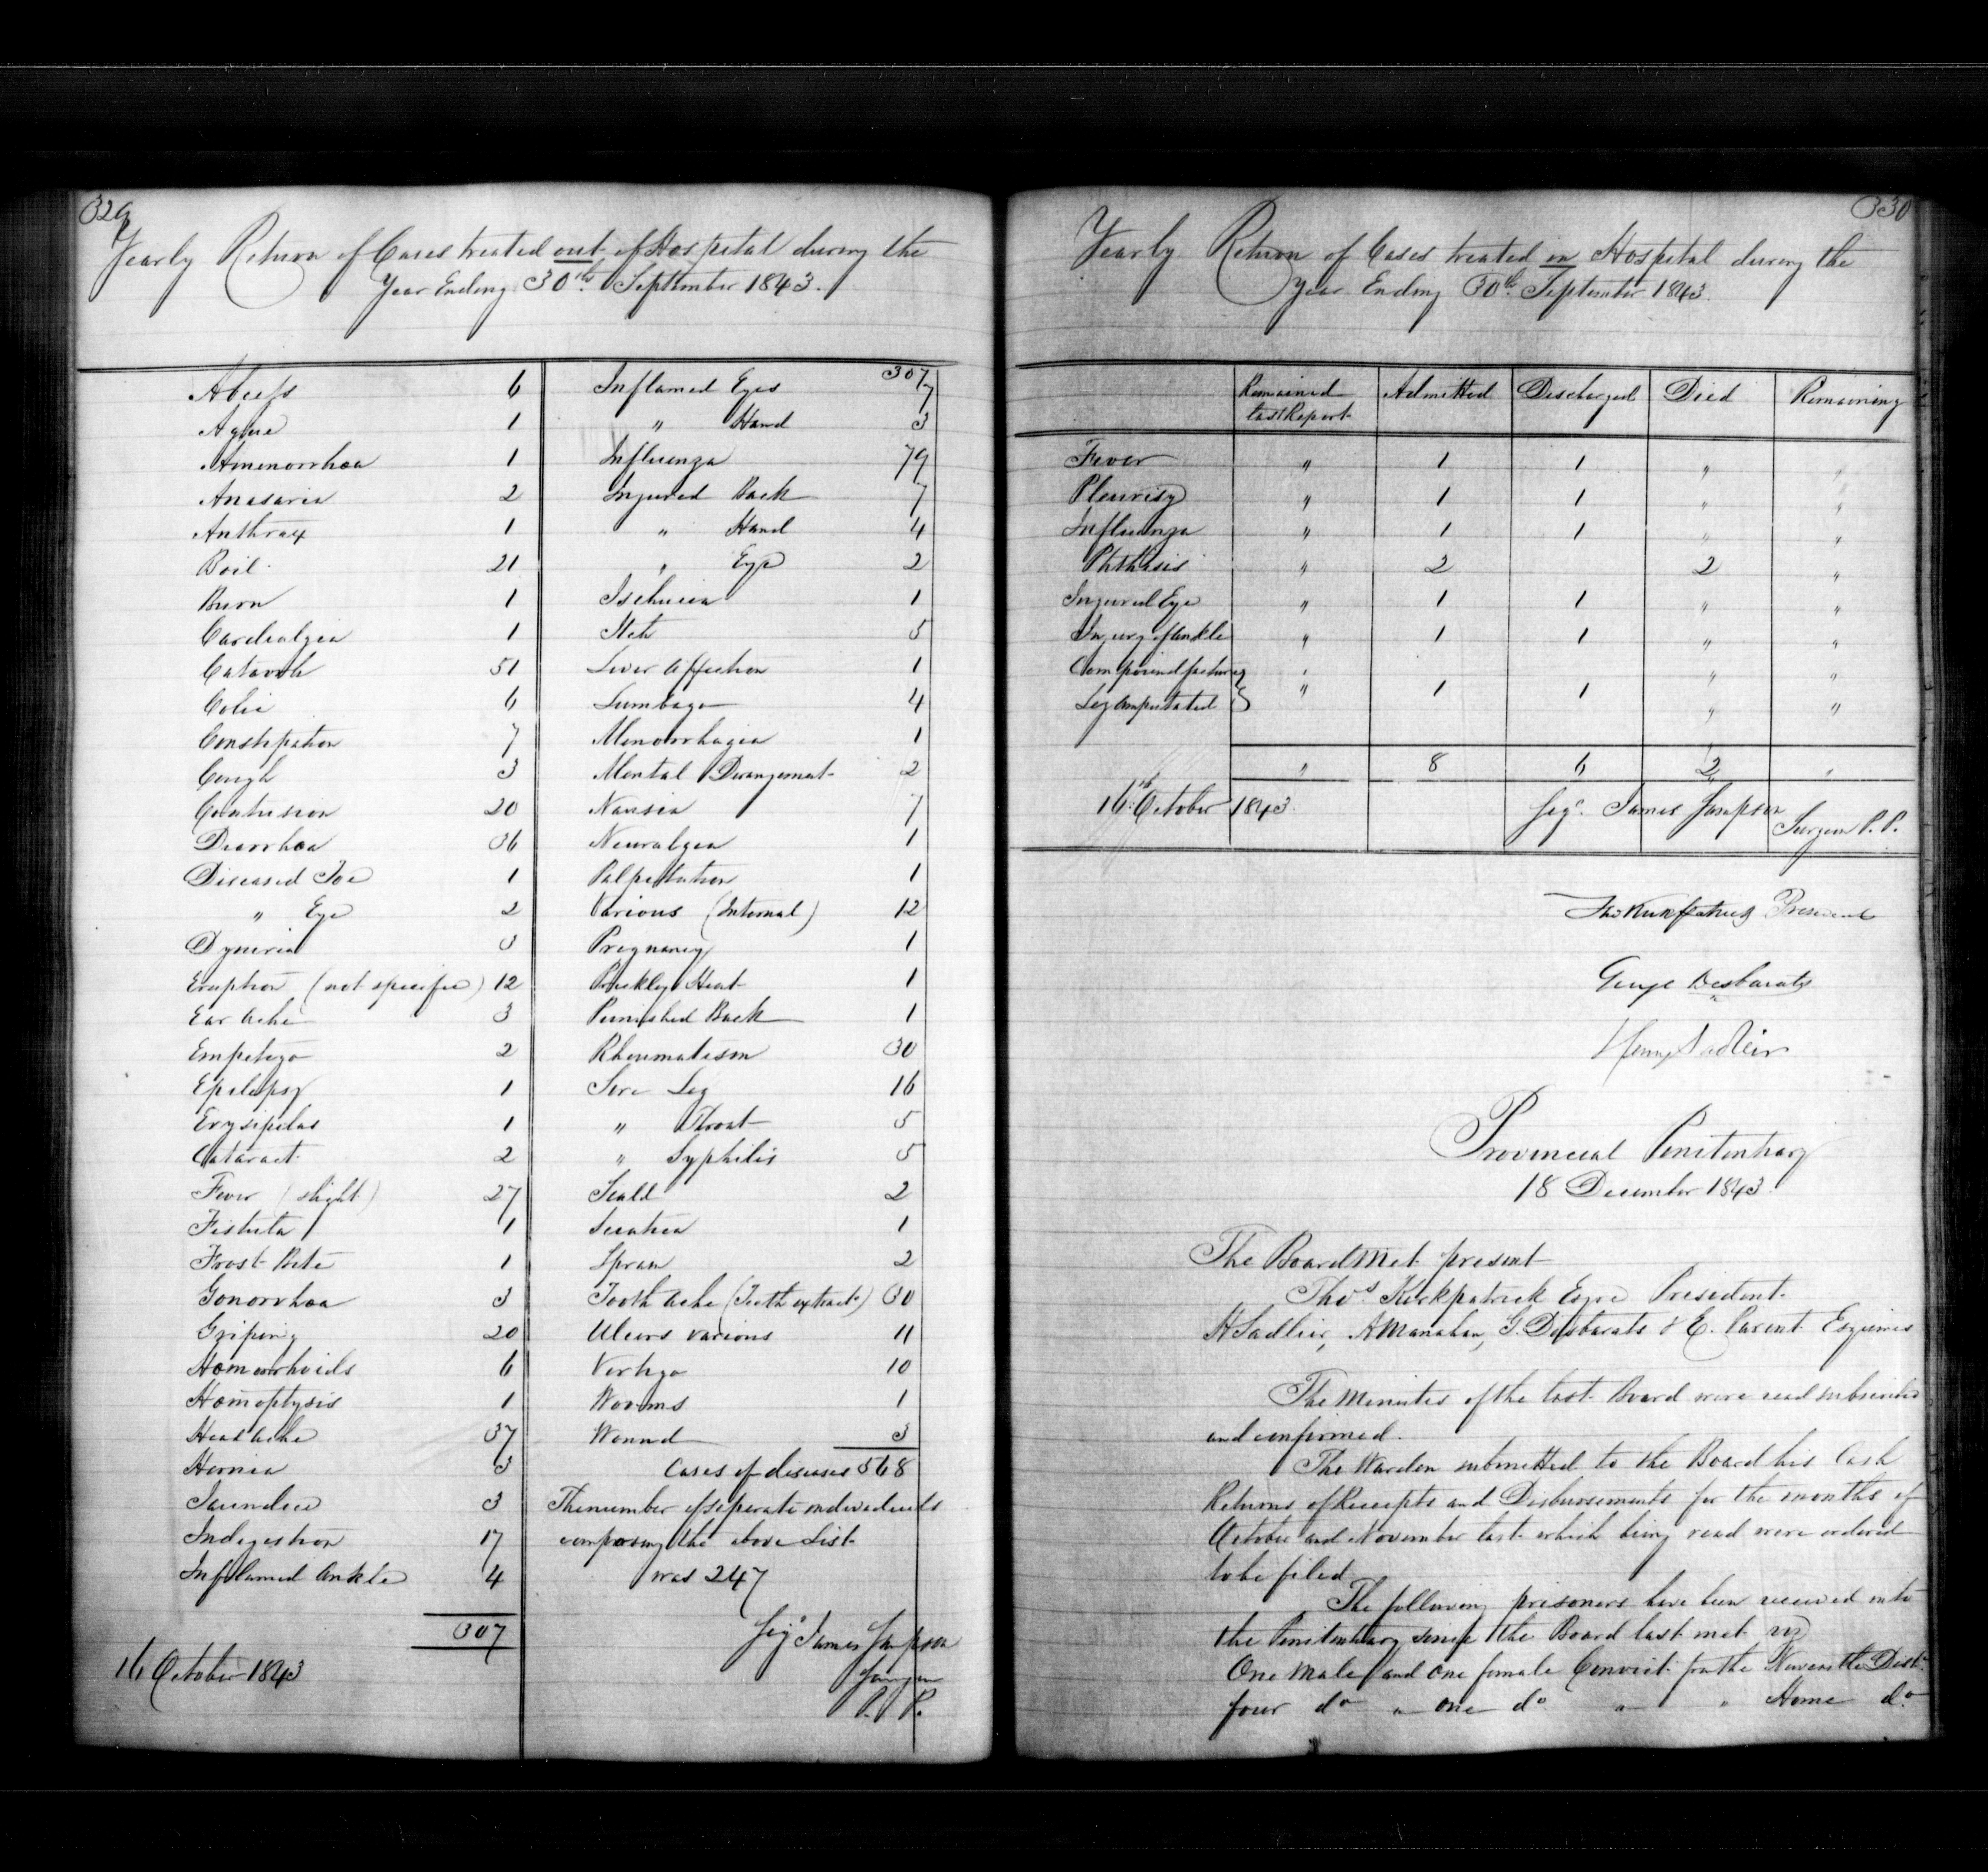 329
Yearly Return of Cases treated out of Hospital during the
Year Ending 30th September 1843.
Abcess 6
Ague 1
Amenorrhœa 1
Anasaria 2
Anthrax 1
Boil 21
Burn 1
Cardialgia 1
Catarrh 51
Colic 6
Constipation 7
Cough 3
Contusion 20
Diarrhœa 36
Diseased Toe 1
" Eye 2
3
Eruption (not specific) 12
Ear ache 3
Empetigo 2
Epilepsy 1
Erysipelas 1
Cataract 2
Fever (slight) 27
Fistula 1
Frost Bite 1
Gonorrhœa 3
Griping 20
Hæmorrhoids 6
Hæmoptysis 1
Head ache 37
Hernia 3
Jaundice 3
Indigestion 17
Inflamed Ankle 4
307
16 October 1843
307
Inflamed Eyes 7
" Hand 3
Influenza 79
Injured Back 7
" Hand 4
" Eye 2
Ischuria 1
Itch 5
Liver Affection 1
Lumbago 4
Menorrhagia 1
Mental Derangement 2
Nausia 7
Neuralgia 1
Palpitation 1
Various (Internal) 12
Pregnancy 1
Prickly Heat 1
Punished Back 1
Rheumatism 30
Sore Leg 16
" Throat 5
" Syphilis 5
Scald 2
Sciatica 1
Sprain 2
Tooth ache (Teeth extract.) 30
Ulcers various 11
Vertigo 10
Worms 1
Wound 3
Cases of diseases 568
The number of separate individuals
composing the above List
was 247
Sigd James Sampson
Surgeon
P. P.
330
Yearly Return of Cases treated in Hospital during the
Year Ending 30th September 1843.
Remained last Report Admitted Discharged Died Remaining
Fever " 1 1 " "
Pleurisy " 1 1 " "
Influenza " 1 1 " "
Phthisis " 2 2 "
Injured Eye " 1 1 " "
Injury of Ankle " 1 1 " "
Compound fracture " " "
Leg amputated } " 1 1 " "
" 8 6 2 "
16th October 1843. Sigd James Sampson
Surgeon P. P.
Thos Kirkpatrick President
George Desbarats
Henry Sadleir
Provincial Penitentiary
18 December 1843.
The Board Met present
Thos Kirkpatrick Esqre President
H Sadleir, A Manahan, G. Desbarats & E. Parent Esquires
The Minutes of the last Board were read subscribed
and confirmed.
The Warden submitted to the Board his Cash
Returns of Receipts and Disbursements for the months of
October and November last which being read were ordered
to be filed
The following prisoners have been received into
the Penitentiary since the Board last met viz
One male and one female Convict from the Newcastle Dist.
four do " one do " " Home do